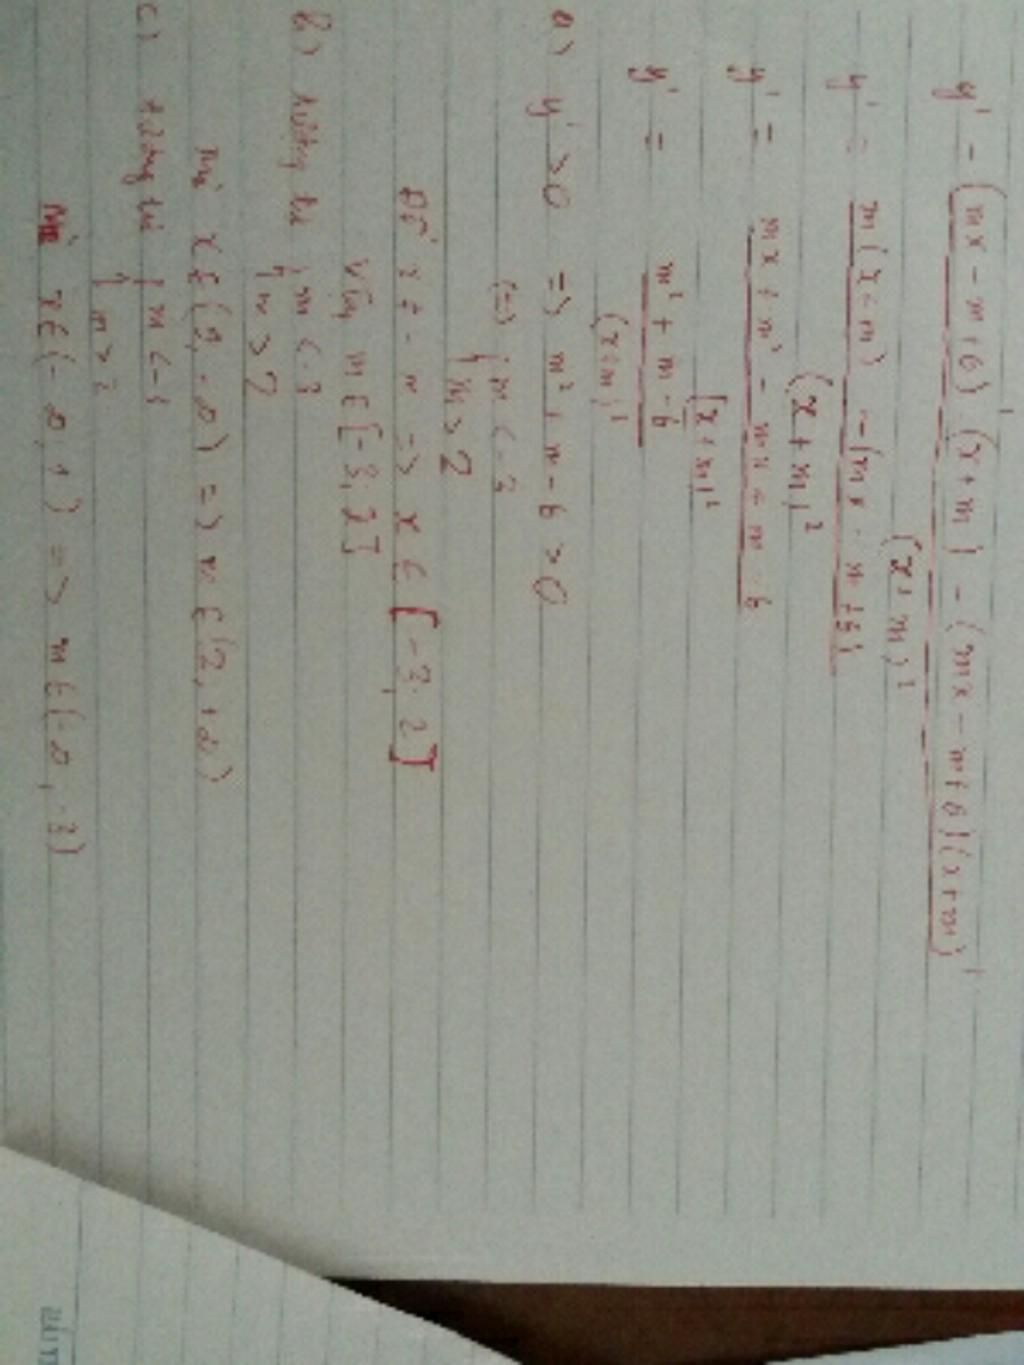 y' = (mx - m + 6)' (x + m) - (mx - m + 6)(x + m)'
(x + m)²
y' = m(x + m) - (mx - m + 6)
(x + m)²
y' = mx + m² - mx + m - 6
(x + m)²
y' = m² + m - 6
(x + m)²
a) y' > 0 => m² + m - 6 > 0
(=) m < -3
m > 2
x ≠ - m => x ∈ [-3, 2]
Vậy m ∈ [-3, 2]
b) tương tự m < -3
m > 2
Mà => m ∈ (2, +∞)
c) tương tự m < -3
m > 2
Mà x ∈ (-∞, 1) => m ∈ (-∞, -3)